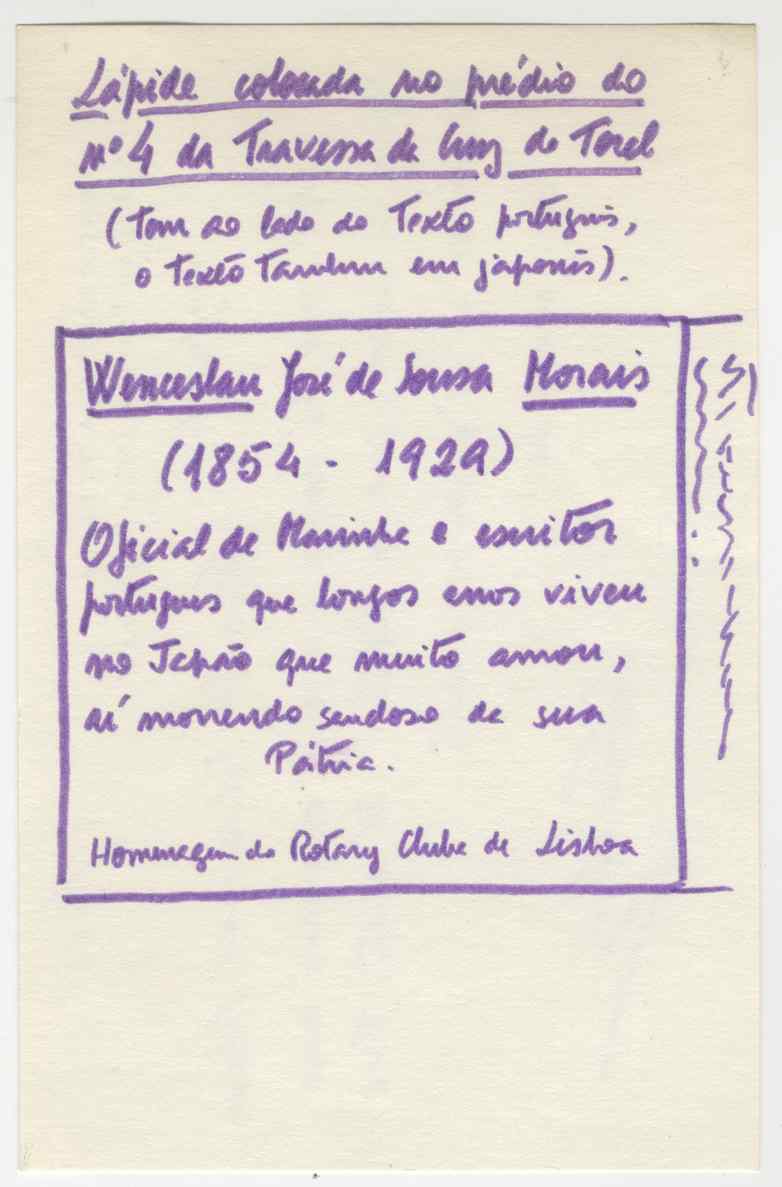 Lápide colocada no prédio do
nº 4 da Travessa da Cruz do Torel
(tem ao lado do texto português,
o texto também em japonês).
Wenceslau José de Sousa Morais
(1854 - 1929)
Oficial de Marinha e escritor
português que longos anos viveu
no Japão que muito amou,
aí morrendo saudoso da sua
Pátria.
Homenagem do Rotary Clube de Lisboa